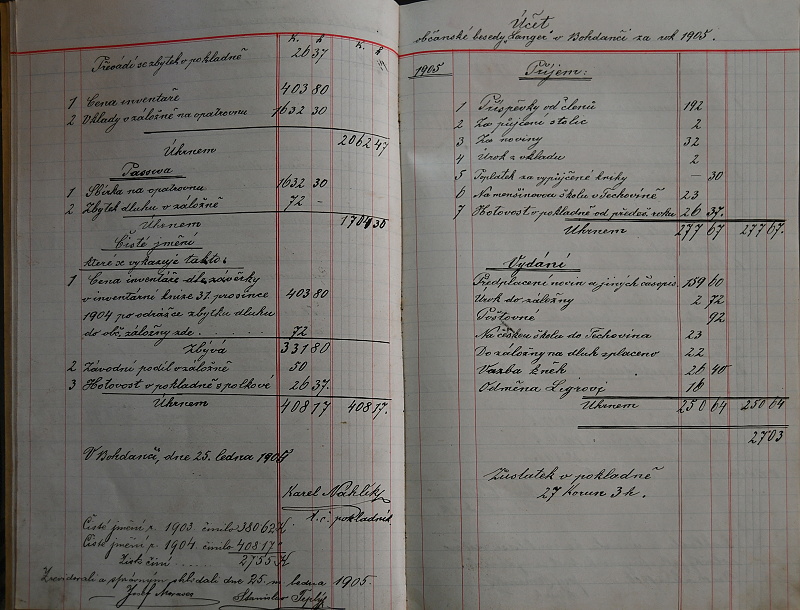 K. h K. h
Převádí se zbytek v pokladně 26 37
1 Cena inventáře 403 80
2 Vklady v záložně na opatrovnu 1632 30
Úhrnem 2062 47
Passiva
1 Sbírka na opatrovnu 1632 30
2 Zbytek dluhu v záložně 72 -
Úhrnem 1704 30
Čisté jmění
které se vykazuje takto:
1 Cena inventáře dle závěrky
v inventární knize 31. prosince 403 80
1904 po odrážce zbytku dluhu
do obč. záložny zde ........ 72
Zbývá 331 80
2 Závodní podíl v záložně 50
3 Hotovost v pokladně spolkové 26 37.
Úhrnem 408 17 408 17.
V Bohdanči, dne 25. ledna 1905
Karel Náhlík
t. č. pokladník
Čisté jmění r. 1903 činilo 380 62 K
Čisté jmění r. 1904 činilo 408 17"
Zisk činí .... 27 55 K
Zrevidovali a správným shledali dne 25. ledna 1905.
Josef Stanislav Teplý
Účet
občanské besedy "Sanger" v Bohdanči za rok 1905.
1905 Příjem:
1 Příspěvky od členů 192
2 Za půjčení stolic 2
3 Za noviny 32
4 Úrok z vkladu 2
5 Poplatek za vypůjčené knihy - 30
6 Na menšinovou školu v Techovině 23
7 Hotovost v pokladně od předeš. roku 26 37.
Úhrnem 277 67 277 67.
Vydání
Předplacení novin a jiných časopis. 159 60
Úrok do záložny 2 72
Poštovné 92
Na českou školu do Techovina 23
Do záložny na dluh splaceno 22
Vazba knih 26 40
Odměna Ligrovi 16
Úhrnem 250 64 250 64
27 03
Zůstatek v pokladně
27 korun 3 h.